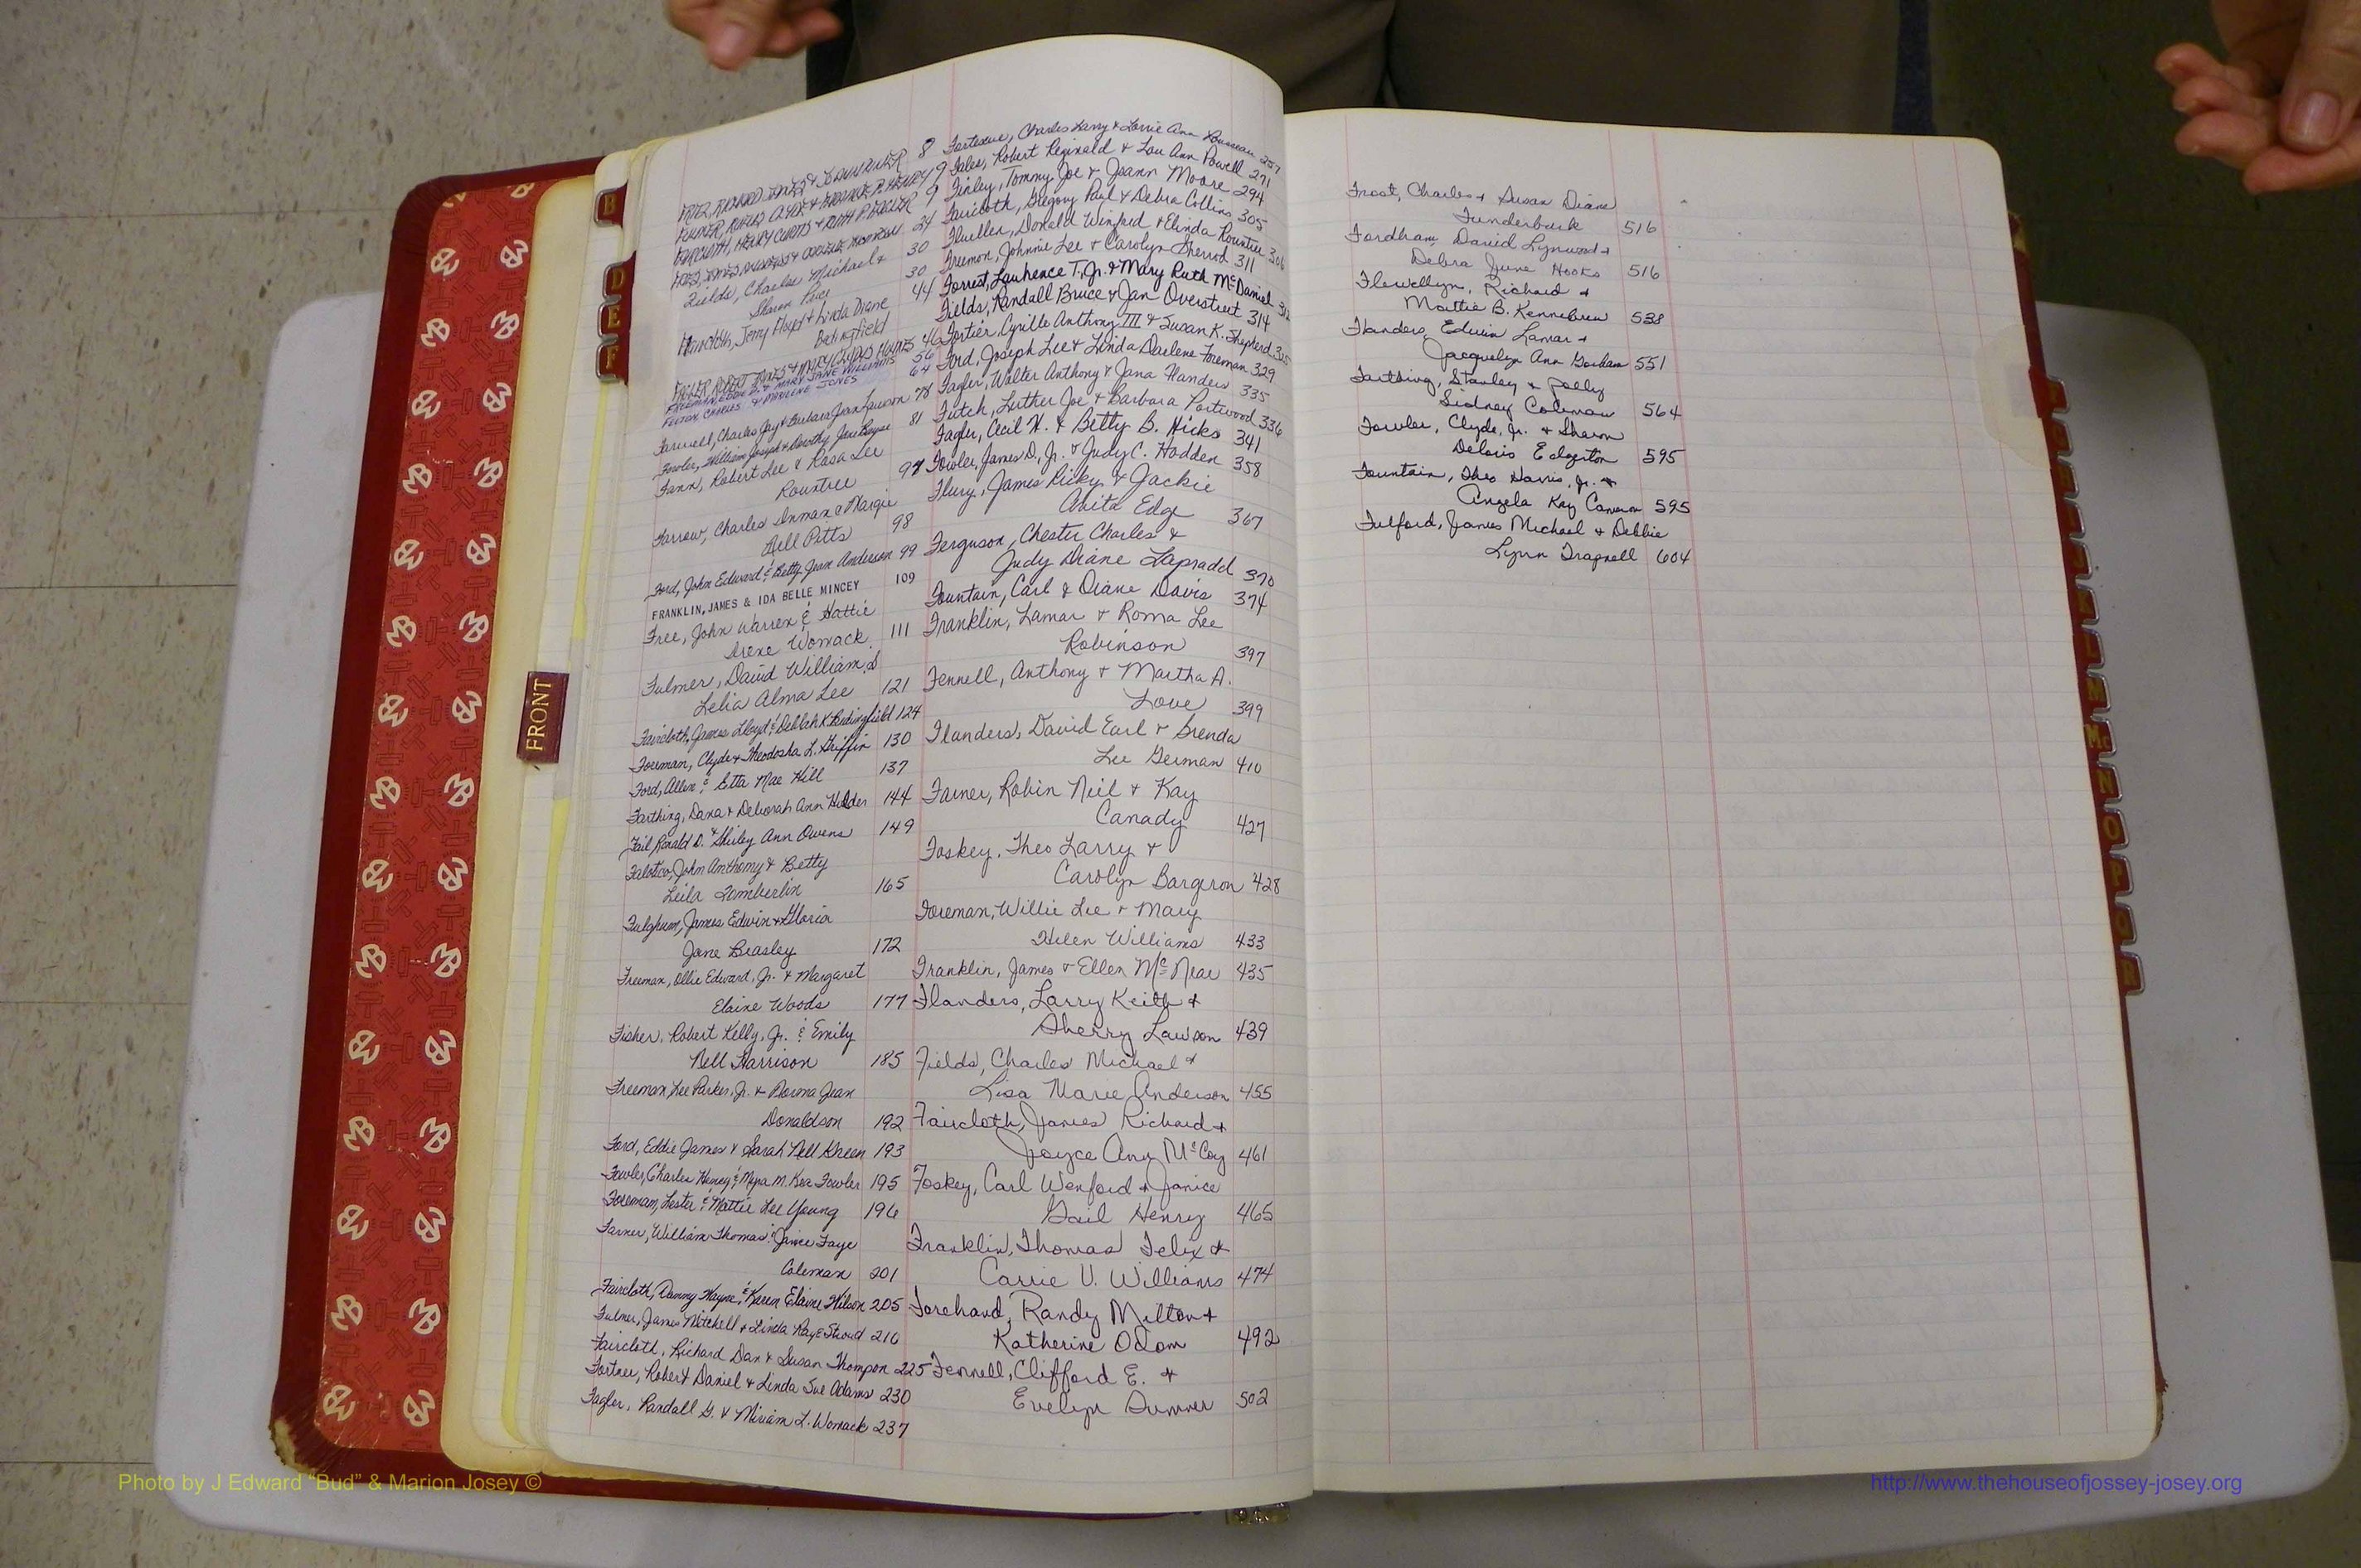 B
D
E
F
FRONT
8
9
9
24
Fields, Charles Michael & 30
Sharon 30
Faircloth, Jerry Floyd & Linda Diane 44
Bedingfield
46
FREEMAN, EDDIE D. & MARY JANE WILLIAMS 56
FUTON, CHARLES & MARLENE JONES 64
Farwell, Charles Jay & Barbara Jean Lawson 78
Fowler, William Joseph & Dorothy Jane 81
Fann, Robert Lee & Rosa Lee
Rountree 97
Farrow, Charles Inman & Margie
Nell Pitts 98
Ford, John Edward & Betty Jean Anderson 99
FRANKLIN, JAMES & IDA BELLE MINCEY 109
Free, John Warren & Hattie
Irene Womack 111
Fulmer, David William &
Lelia Alma Lee 121
Faircloth, James Lloyd & Deblah K. Bedingfield 124
Foreman, Clyde & Theodosha L. Griffin 130
Ford, Allen & Etta Mae Hill 137
Farthing, Dana & Deborah Ann 144
Fail Ronald D. & Shirley Ann Owens 149
Falotico, John Anthony & Betty
Leila Tamberlin 165
Fulghum, James Edwin & Gloria
Jane Beasley 172
Freeman, Ollie Edward, Jr. & Margaret
Elaine Woods 177
Fisher, Robert Kelly, Jr. & Emily
Nell Harrison 185
Freeman, Lee Parker, Jr. & Norma Jean
Donaldson 192
Ford, Eddie James & Sarah Nell Green 193
Fowler, Charles Haney & Myra M. Kea Fowler 195
Foreman, Lester & Mattie Lee Young 196
Farmer, William Thomas & Janice Faye
Coleman 201
Faircloth, Danny Wayne & Karen Elaine Wilson 205
Fulmer, James Mitchell & Linda Kaye Stroud 210
Faircloth, Richard Dan & Susan Thompson 225
Fortner, Robert Daniel & Linda Sue Adams 230
Fagler, Randall G. & Miriam L. Womack 237
Fortexeue, Charles Larry & Lorrie Ann Rousseau 257
Fales, Robert Reginald & Lou Ann Powell 271
Finley, Tommy Joe & Joann Moore 294
Faircloth, Gregory Paul & Debra Collins 305
Fluellen, Donald Winford & Elinda Rountree 306
Freemon, Johnnie Lee & Carolyn Sherrod 311
Forrest, Lawrence T., Jr. & Mary Ruth McDaniel 312
Fields, Randall Bruce & Jan Overstreet 314
Fortier, Cyrille Anthony III & Susan K. Shepherd 325
Ford, Joseph Lee & Linda Darlene Foreman 329
Fagler, Walter Anthony & Jana Flanders 335
Futch, Luther Joe & Barbara Portwood 336
Fagler, Cecil H. & Betty B. Hicks 341
Fowler, James D., Jr. & Judy C. Hadden 358
Flury, James Ricky & Jackie
Anita Edge 367
Ferguson, Chester Charles &
Judy Diane Lapradd 370
Fountain, Carl & Diane Davis 374
Franklin, Lamar & Roma Lee
Robinson 397
Fennell, Anthony & Martha A.
Love 399
Flanders, David Earl & Brenda
Lee German 410
Farner, Robin Neil & Kay
Canady 427
Foskey, Theo Larry &
Carolyn Bargeron 428
Foreman, Willie Lee & Mary
Helen Williams 433
Franklin, James & Ellen McNear 435
Flanders, Larry Keith &
Sherry Lawson 439
Fields, Charles Michael &
Lisa Marie Anderson 455
Faircloth, James Richard &
Joyce Ann McCoy 461
Foskey, Carl Wenford & Janice
Gail Henry 465
Franklin, Thomas Felix &
Carrie V. Williams 474
Forehand, Randy Milton &
Katherine Odom 492
Fennell, Clifford E. &
Evelyn Sumner 502
Frost, Charles & Susan Diane
Funderburk 516
Fordham, David Lynwood &
Debra June Hooks 516
Flewellyn, Richard &
Mattie B. Kennebrew 538
Flanders, Edwin Lamar &
Jacquelyn Ann Gorham 551
Farthing, Stanley & Polly
Sidney Coleman 564
Fowler, Clyde, Jr. & Sharon
Deloris Edgerton 595
Fountain, Theo Harris, Jr. &
Angela Kay Cameron 595
Fulford, James Michael & Debbie
Lynn Trapnell 604
Mc
N
O
P
Q
R
Photo by J Edward “Bud” & Marion Josey ©
http://www.thehouseofjossey-josey.org